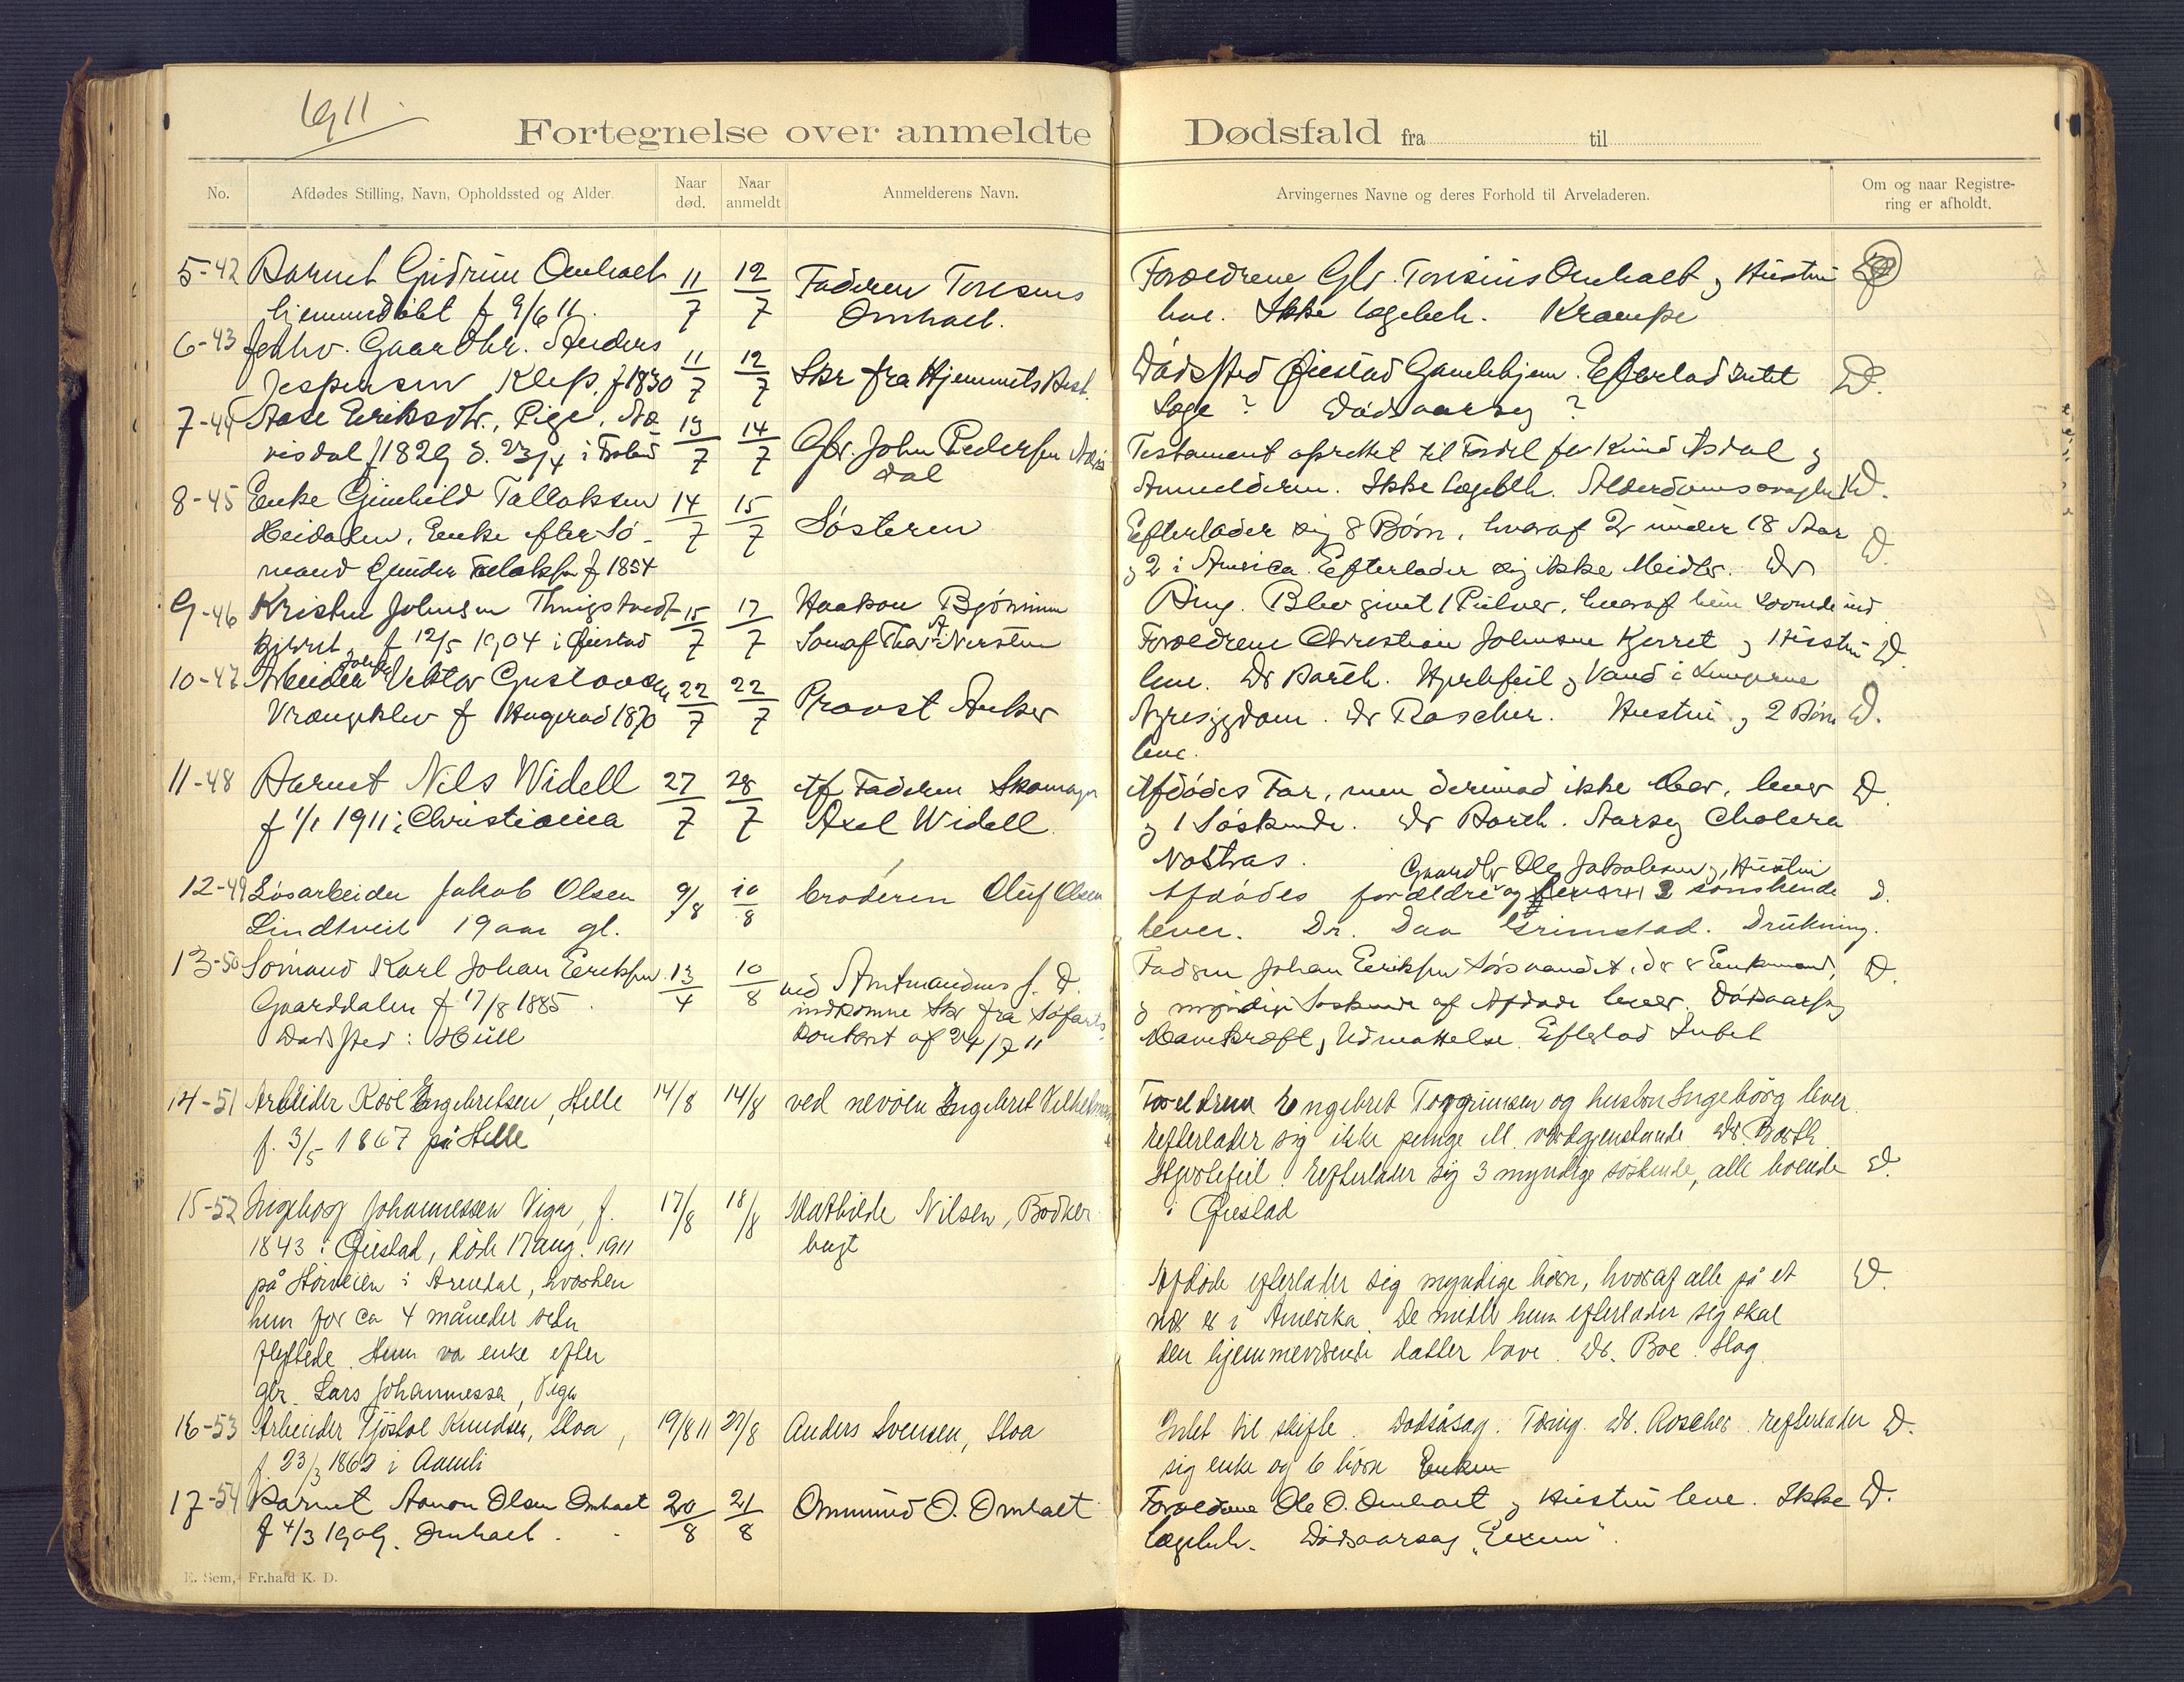 1911
Fortegnelse over anmeldte Dødsfald fra til
No. Afdødes Stilling, Navn, Opholdssted og Alder. Naar død. Naar anmeldt Anmelderens Navn. Arvingernes Navne og deres Forhold til Arveladeren. Om og naar Registrering er afholdt.
5-42 Barnet Gudrun Omholt 11/7 12/7 Faderen Tonesius Forældrene Gbr. Tonesius Omholt og Hustru
hjemmedøbt f 9/6 11. Omholt. leve. Ikke lægebeh. Krampe
6-43 Gaardbr. Anders 11/7 12/7 Skr fra Hjemmets Best. Dødssted Øiestad Gamlehjem. Efterlod Intet D.
Jespersen Klep. f 1830 Læge? Dødsaarsag?
7-44 Aase Eriksdtr., Pige, Næ 13/7 14/7 Gbr. John Pedersen Testament oprettet til Fordel for Knud Asdal og
visdal f 1829 d. 23/4 i Froland dal Anmelderen. Ikke lægebeh. D.
8-45 Enke Gunhild Tallaksen 14/7 15/7 Søsteren Efterlader sig 8 Børn, hvoraf 2 under 18 Aar D.
Heidalen, Enke efter Sø- og 2 i America. Efterlader sig ikke Midler. Dr
mand Gunder Tallaksen f 1854 Ring. Blev givet 1 Pulver, hvoraf hun sovnede ind
9-46 Kristen Johnsen Thingstvedt 15/7 17/7 Haakon Bjørnsen Forældrene Christian Johnsen Kjerret og Hustru D.
Kjerret, f 12/5 1904 i Øiestad leve. Dr Barth. Hjertefeil og Vand i Lungerne
10-47 Arbeider Viktor Gustavsen 22/7 22/7 Provst Anker Nyresygdom. Dr Roscher. Hustru og 2 Børn D.
Vrængeklev f 1870 leve.
11-48 Barnet Nils Widell 27/7 28/7 Af Faderen Skomager Afdødes Far, men derimod ikke Mor, lever D.
f 1/1 1911 i Christiania Axel Widell og 1 Søskende. Dr Barth. Aarsag Cholera
Nostras.
Gaardbr Ole Jakobsen og Hustru
12-49 Løsarbeider Jakob Olsen 9/8 10/8 broderen Oluf Olsen Afdødes forældre og 3 søskende D.
Lindtveit 19 aar gl. lever. Dr. Daa Grimstad. Drukning.
13-50 Sømand Karl Johan Eriksen 13/4 10/8 ved Amtmanden f. D. Faderen Johan Eriksen Enkemand, D.
Gaarddalen f 17/8 1885. indkomne Skr fra Søfarts og myndige Søskende af Afdøde lever. Dødsaarsag
Dødssted: Hull kontoret af 24/7 11 Mavekræft, Udmattelse. Efterlod Intet
14-51 Arbeider Karl Engebretsen, Helle 14/8 14/8 ved nevøen Engebret Forældrene Engebret Torgrimsen og hustru Ingeborg lever.
f. 3/5 1867 på Helle Efterlader sig ikke penge ell. værdgjenstande. Dr. Barth.
Hjertefeil. Efterlader sig 3 myndige søskende, alle boende D.
i Øiestad
15-52 Ingeborg Johannessen Viga, f. 17/8 18/8 Mathilde Nilsen, Bødker
1843 i Øiestad, døde 17 aug. 1911 bugt
på i Arendal, hvorhen Afdøde efterlader sig myndige børn, hvoraf alle på et D.
hun for ca 4 måneder siden nær er i Amerika. De midler hun efterlader sig skal
flyttede. Hun va enke efter den hjemmeværende datter have. Dr. Boe. Slag
gbr. Lars Johannessen, Viga
16-53 Arbeider Tjøstol Knudsen, Stoa, 19/8 11 21/8 Anders Svensen, Stoa Intet til skifte. Dødsårsag: Tæring. Dr. Roscher. Efterlader D.
f. 23/3 1862 i Aamli sig enke og 6 børn Enken
17-54 Barnet Aanon Olsen Omholt 20/8 21/8 Ommund O. Omholt Forældrene Ole O. Omholt og Hustru leve. Ikke D.
f 4/3 1909. Omholt. lægebeh. Dødsaarsag "Exem".
E. Sem, Fr.hald K. D.